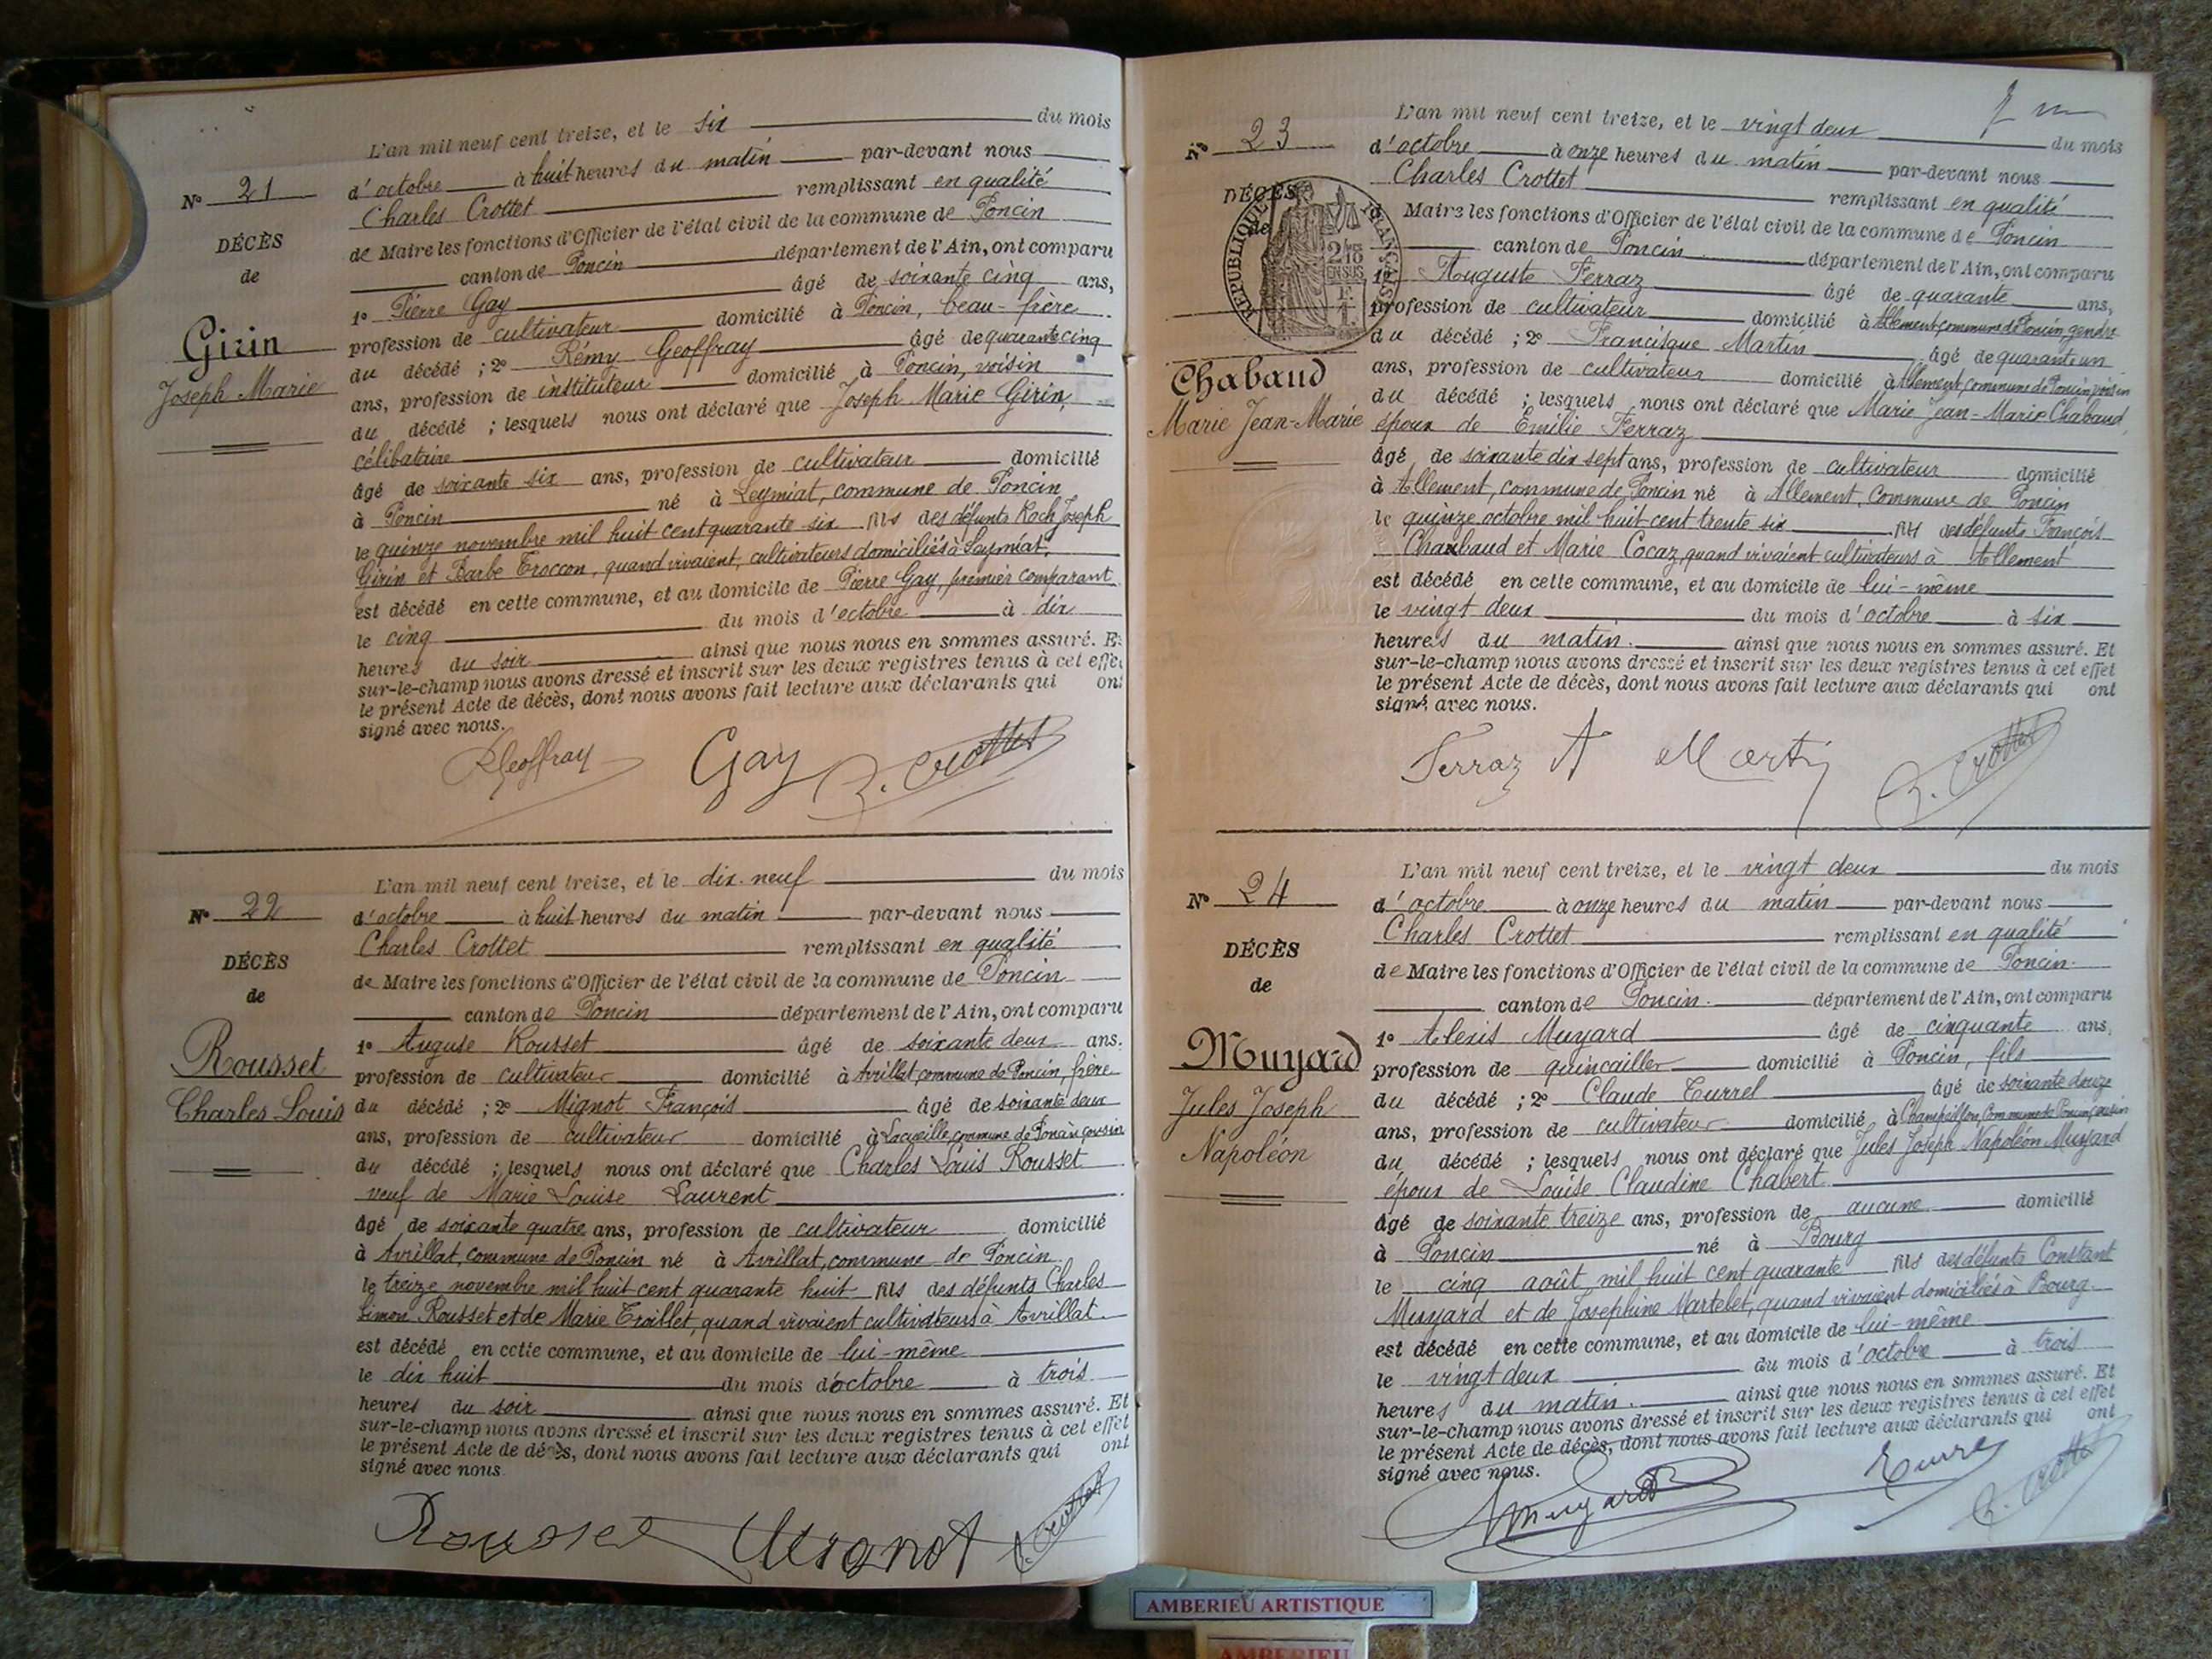 N° 21
DÉCÈS
de
Girin
Joseph Marie
L'an mil neuf cent treize, et le six du mois
d'octobre à huit heures du matin par-devant nous
Charles Crottet remplissant en qualité
de Maire les fonctions d'Officier de l'état civil de la commune de Poncin
canton de Poncin département de l'Ain, ont comparu
1° Pierre Gay âgé de soixante cinq ans,
profession de cultivateur domicilié à Poncin, beau-frère
du décédé ; 2° Rémy Geoffray âgé de quarante cinq
ans, profession de instituteur domicilié à Poncin, voisin
du décédé ; lesquels nous ont déclaré que Joseph Marie Girin,
célibataire
âgé de soixante six ans, profession de cultivateur domicilié
à Poncin né à Leymiat, commune de Poncin
le quinze novembre mil huit cent quarante six fils des défunts Roch Joseph
Girin et Barbe Troccon, quand vivaient, cultivateurs domiciliés à Leymiat,
est décédé en cette commune, et au domicile de Pierre Gay, premier comparant
le cinq du mois d'octobre à dix
heures du soir ainsi que nous nous en sommes assuré. Et
sur-le-champ nous avons dressé et inscrit sur les deux registres tenus à cet effet
le présent Acte de décès, dont nous avons fait lecture aux déclarants qui ont
signé avec nous.
RGeoffray Gay C. Crottet
N° 22
DÉCÈS
de
Rousset
Charles Louis
L'an mil neuf cent treize, et le dix-neuf du mois
d'octobre à huit heures du matin par-devant nous
Charles Crottet remplissant en qualité
de Maire les fonctions d'Officier de l'état civil de la commune de Poncin
canton de Poncin département de l'Ain, ont comparu
1° Auguse Rousset âgé de soixante deux ans.
profession de cultivateur domicilié à Avrillat commune de Poncin, frère
du décédé ; 2° Mignot François âgé de soixante deux
ans, profession de cultivateur domicilié à Lacueille, commune de Poncin cousin
du décédé ; lesquels nous ont déclaré que Charles Louis Rousset
veuf de Marie Louise Laurent
âgé de soixante quatre ans, profession de cultivateur domicilié
à Avrillat, commune de Poncin né à Avrillat, commune de Poncin
le treize novembre mil huit cent quarante huit fils des défunts Charles
Simon Rousset et de Marie Troillet, quand vivaient cultivateurs à Avrillat
est décédé en cette commune, et au domicile de lui-même
le dix huit du mois d'octobre à trois
heures du soir ainsi que nous nous en sommes assuré. Et
sur-le-champ nous avons dressé et inscrit sur les deux registres tenus à cet effet
le présent Acte de décès, dont nous avons fait lecture aux déclarants qui ont
signé avec nous.
Rousset Mignot C. Crottet
N° 23
DÉCÈS
de
RÉPUBLIQUE FRANÇAISE
2/10 EN SUS
Chabaud
Marie Jean-Marie
L'an mil neuf cent treize, et le vingt deux du mois
d'octobre à onze heures du matin par-devant nous
Charles Crottet remplissant en qualité
Maire les fonctions d'Officier de l'état civil de la commune de Poncin
canton de Poncin département de l'Ain, ont comparu
1° Auguste Ferraz âgé de quarante ans,
profession de cultivateur domicilié à Allement, commune de Poncin, gendre
du décédé ; 2° Francisque Martin âgé de quarante un
ans, profession de cultivateur domicilié à Allement, commune de Poncin voisin
du décédé ; lesquels nous ont déclaré que Marie Jean-Marie Chabaud,
époux de Émilie Ferraz
âgé de soixante dix sept ans, profession de cultivateur domicilié
à Allement, commune de Poncin né à Allement, commune de Poncin
le quinze octobre mil huit cent trente six fils des défunts François
Chabaud et Marie Cocaz, quand vivaient cultivateurs à Allement
est décédé en cette commune, et au domicile de lui-même
le vingt deux du mois d'octobre à six
heures du matin. ainsi que nous nous en sommes assuré. Et
sur-le-champ nous avons dressé et inscrit sur les deux registres tenus à cet effet
le présent Acte de décès, dont nous avons fait lecture aux déclarants qui ont
signé avec nous.
Ferraz A Martin C. Crottet
N° 24
DÉCÈS
de
Muyard
Jules Joseph
Napoléon
L'an mil neuf cent treize, et le vingt deux du mois
d'octobre à onze heures du matin par-devant nous
Charles Crottet remplissant en qualité
de Maire les fonctions d'Officier de l'état civil de la commune de Poncin
canton de Poncin. département de l'Ain, ont comparu
1° Alexis Muyard âgé de cinquante ans,
profession de quincailler domicilié à Poncin, fils
du décédé ; 2° Claude Turrel âgé de soixante douze
ans, profession de cultivateur domicilié à Champeillon, commune de Poncin, cousin
du décédé ; lesquels nous ont déclaré que Jules Joseph Napoléon Muyard
époux de Louise Claudine Chabert
âgé de soixante treize ans, profession de aucune domicilié
à Poncin né à Bourg
le cinq août mil huit cent quarante fils des défunts Constant
Muyard et de Joséphine Martelet, quand vivaient domiciliés à Bourg.
est décédé en cette commune, et au domicile de lui-même
le vingt deux du mois d'octobre à trois
heures du matin. ainsi que nous nous en sommes assuré. Et
sur-le-champ nous avons dressé et inscrit sur les deux registres tenus à cet effet
le présent Acte de décès, dont nous avons fait lecture aux déclarants qui ont
signé avec nous.
AMuyard C. Crottet
AMBERIEU ARTISTIQUE
AMBERIEU